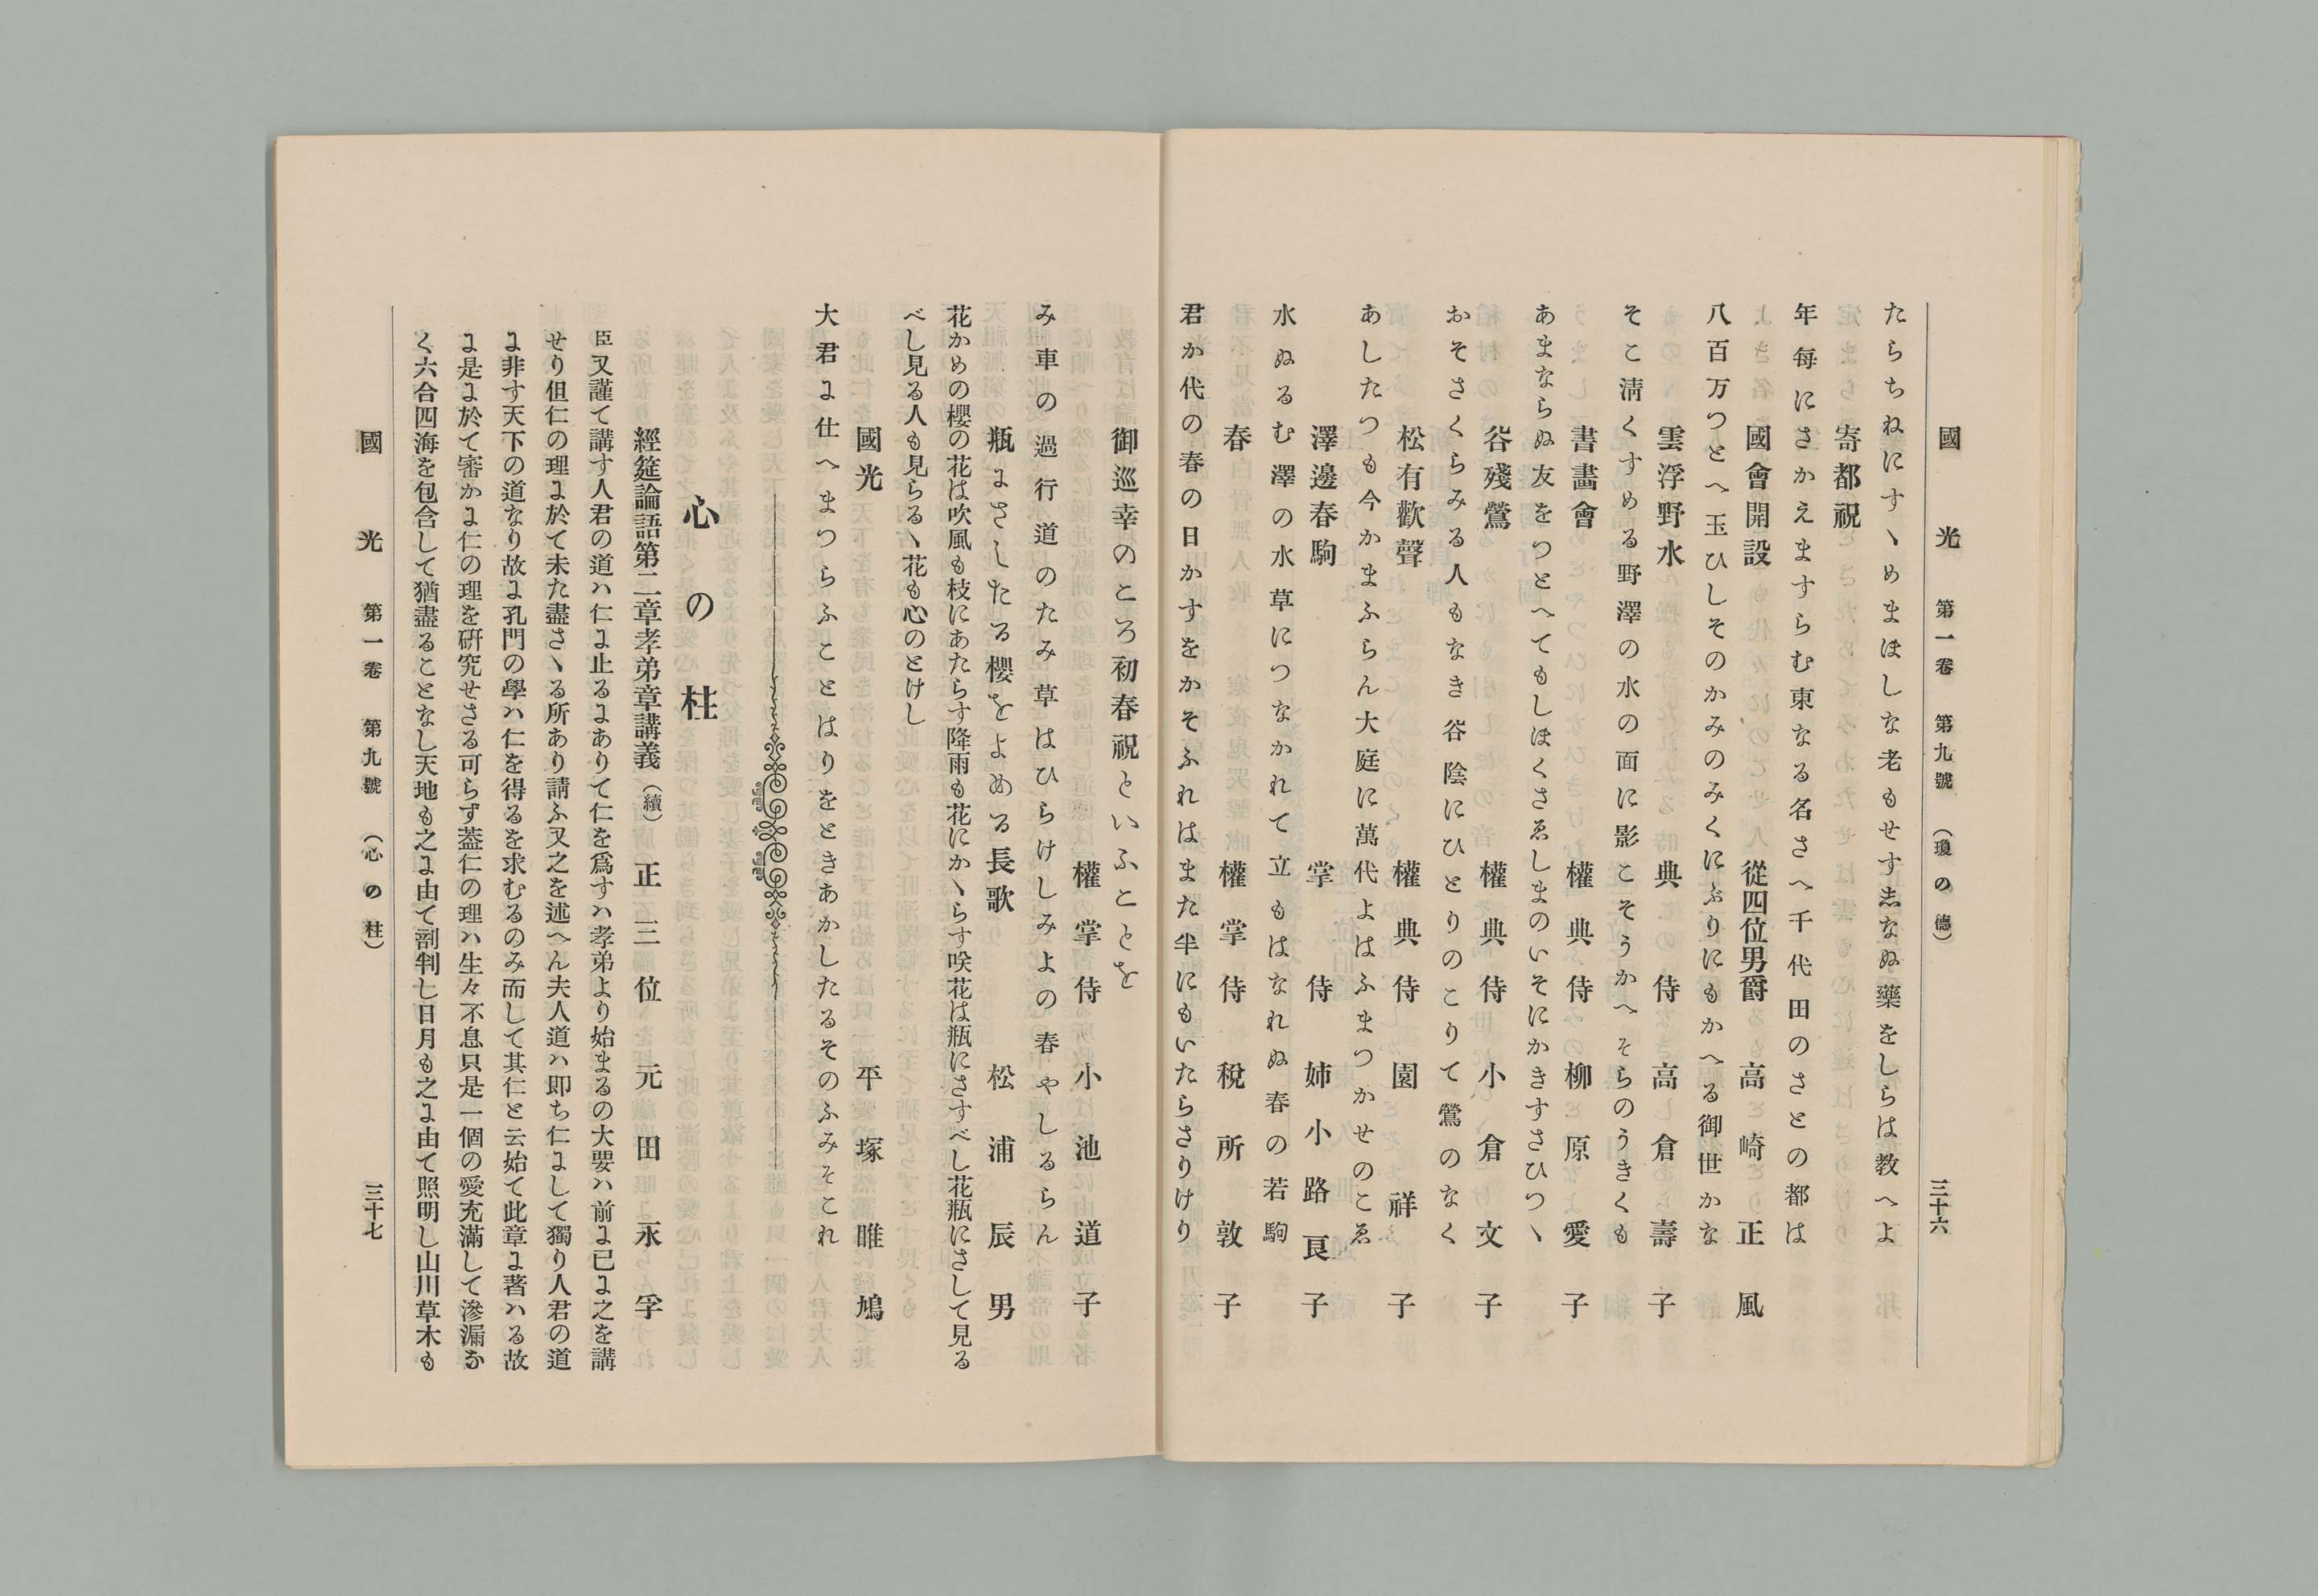 國光 第一卷 第九號 （瓊の德） 三十六
たらちねにすゝめまほしな老もせす志なぬ藥をしらは教へよ
寄都祝
年每にさかえますらむ東なる名さへ千代田のさとの都は
國會開設 從四位男爵 高崎正風
八百万つとへ玉ひしそのかみのみくにぶりにもかへる御世かな
雲浮野水 典侍 高倉壽子
そこ淸くすめる野澤の水の面に影こそうかへそらのうきくも
書畫會 權典侍 柳原愛子
あまならぬ友をつとへてもしほくさゑしまのいそにかきすさひつゝ
谷殘鶯 權典侍 小倉文子
おそさくらみる人もなき谷陰にひとりのこりて鶯のなく
松有歡聲 權典侍 園祥子
あしたつも今かまふらん大庭に萬代よはふまつかせのこゑ
澤邊春駒 掌侍 姉小路良子
水ぬるむ澤の水草につなかれて立もはなれぬ春の若駒
春 權掌侍 稅所敦子
君か代の春の日かすをかそふれはまた半にもいたらさりけり
御巡幸のころ初春祝といふことを
權掌侍 小池道子
み車の過行道のたみ草はひらけしみよの春やしるらん
瓶にさしたる櫻をよめる長歌 松浦辰男
花かめの櫻の花は吹風も枝にあたらす降雨も花にかゝらす咲花は瓶にさすべし花瓶にさして見る
べし見る人も見らるゝ花も心のとけし
國光 平塚睢鳩
大君に仕へまつらふことはりをときあかしたるそのふみそこれ
心の柱
經筵論語第二章孝弟章講義（續） 正三位 元田永孚
臣又謹て講す人君の道ハ仁に止るにありて仁を爲すハ孝弟より始まるの大要ハ前に已に之を講
せり但仁の理に於て未た盡さゝる所あり請ふ又之を述へん夫人道ハ即ち仁にして獨り人君の道
に非す天下の道なり故に孔門の學ハ仁を得るを求むるのみ而して其仁と云始て此章に著ハる故
に是に於て審かに仁の理を硏究せさる可らず葢仁の理ハ生々不息只是一個の愛充滿して滲漏な
く六合四海を包含して猶盡ることなし天地も之に由て剖判し日月も之に由て照明し山川草木も
國光 第一卷 第九號 （心の柱） 三十七